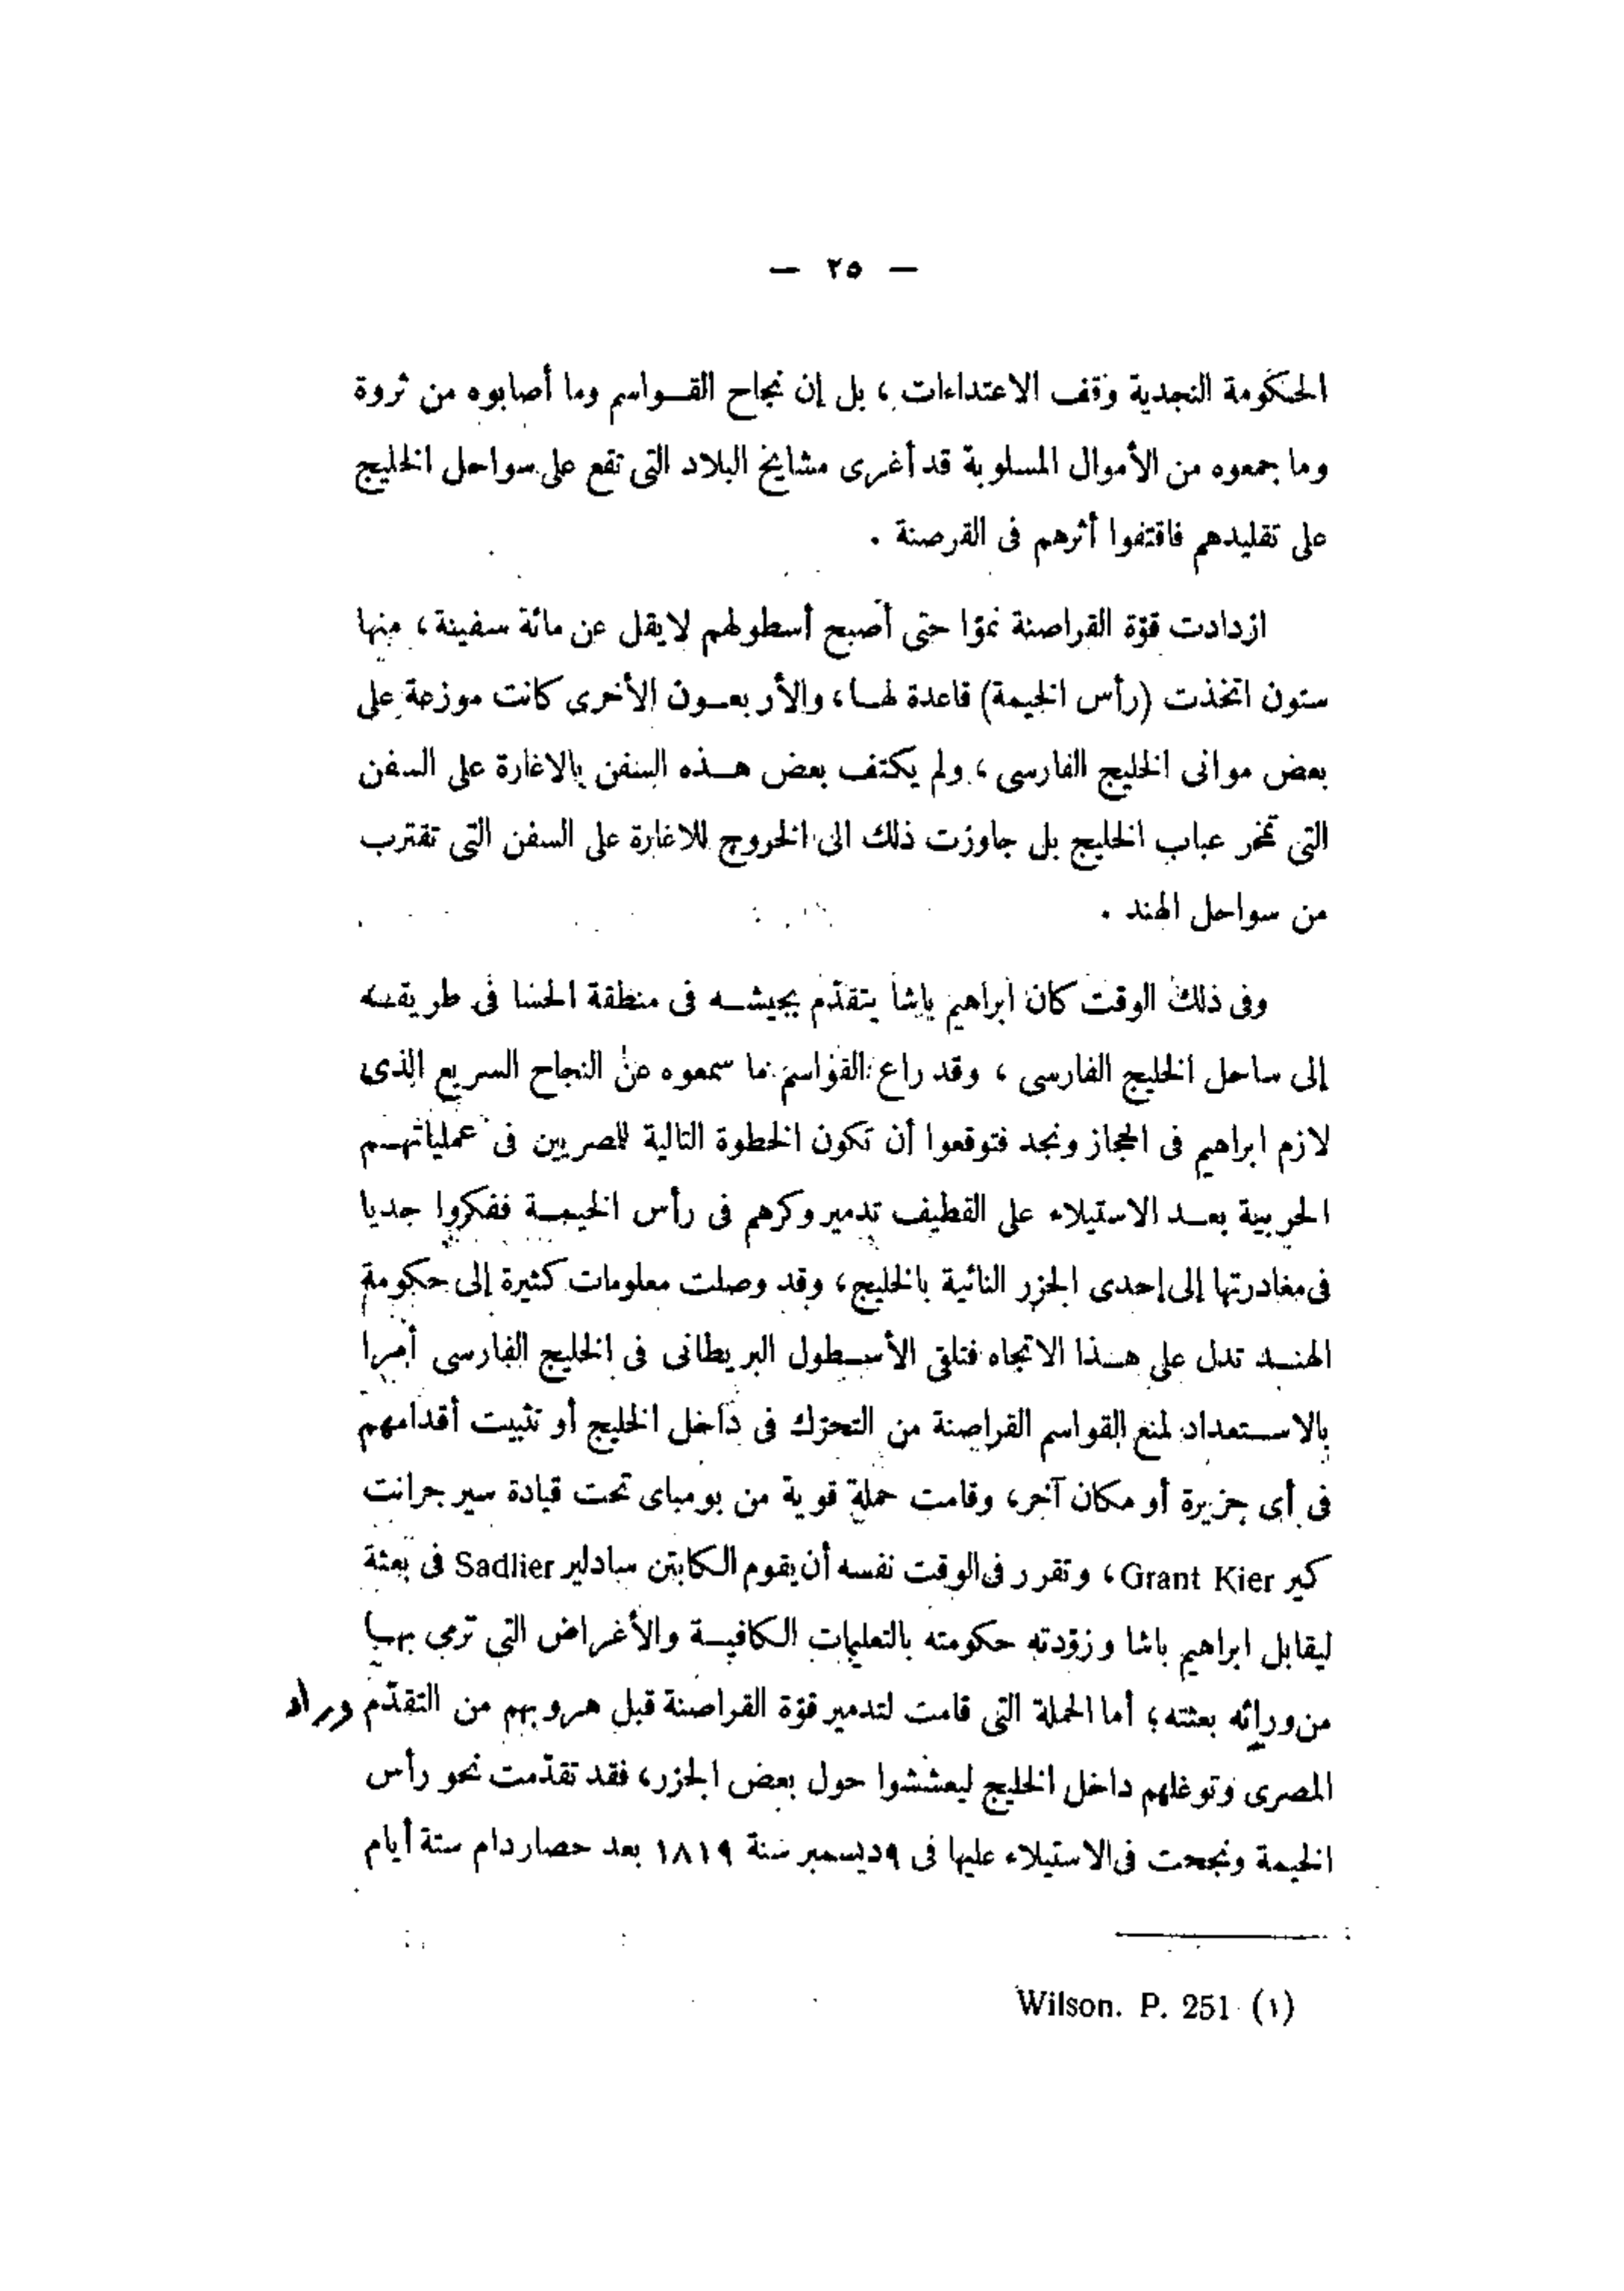 — ٢٥ —
الحكومة النجدية وقف الاعتداءات ، بل إن نجاح القواسم وما أصابوه من ثروة
وما جمعوه من الأموال المسلوبة قد أغرى مشايخ البلاد التى تقع على سواحل الخليج
على تقليدهم فاقتفوا أثرهم فى القرصنة .
ازدادت قوّة القراصنة نموّا حتى أصبح أسطولهم لا يقل عن مائة سفينة ، منها
ستون اتخذت (رأس الخيمة) قاعدة لها ، والأربعون الأخرى كانت موزعة على
بعض موانى الخليج الفارسى ، ولم يكتف بعض هذه السفن بالاغارة على السفن
التى تمخر عباب الخليج بل جاوزت ذلك الى الخروج للاغارة على السفن التى تقترب
من سواحل الهند .
وفى ذلك الوقت كان ابراهيم باشا يتقدّم بجيشه فى منطقة الحسا فى طريقه
إلى ساحل الخليج الفارسى ، وقد راع القواسم ما سمعوه عن النجاح السريع الذى
لازم ابراهيم فى الحجاز ونجد فتوقعوا أن تكون الخطوة التالية للمصريين فى عملياتهم
الحربية بعد الاستيلاء على القطيف تدمير وكرهم فى رأس الخيمة ففكروا جديا
فى مغادرتها إلى إحدى الجزر النائية بالخليج ، وقد وصلت معلومات كثيرة إلى حكومة
الهند تدل على هذا الاتجاه فتلقى الأسطول البريطانى فى الخليج الفارسى أمرا
بالاستعداد لمنع القواسم القراصنة من التحرّك فى داخل الخليج أو تثبيت أقدامهم
فى أى جزيرة أو مكان آخر ، وقامت حملة قوية من بومباى تحت قيادة سير جرانت
كير Grant Kier ، وتقرر فى الوقت نفسه أن يقوم الكابتن سادلير Sadlier فى بعثة
ليقابل ابراهيم باشا وزوّدته حكومته بالتعليمات الكافية والأغراض التى ترمى بها
من ورائه بعثته ؛ أما الحملة التى قامت لتدمير قوّة القراصنة قبل هروبهم من التقدّم
المصرى وتوغلهم داخل الخليج ليعششوا حول بعض الجزر ، فقد تقدّمت نحو رأس
الخيمة ونجحت فى الاستيلاء عليها فى ٩ ديسمبر سنة ١٨١٩ بعد حصار دام ستة أيام
(١) Wilson. P. 251